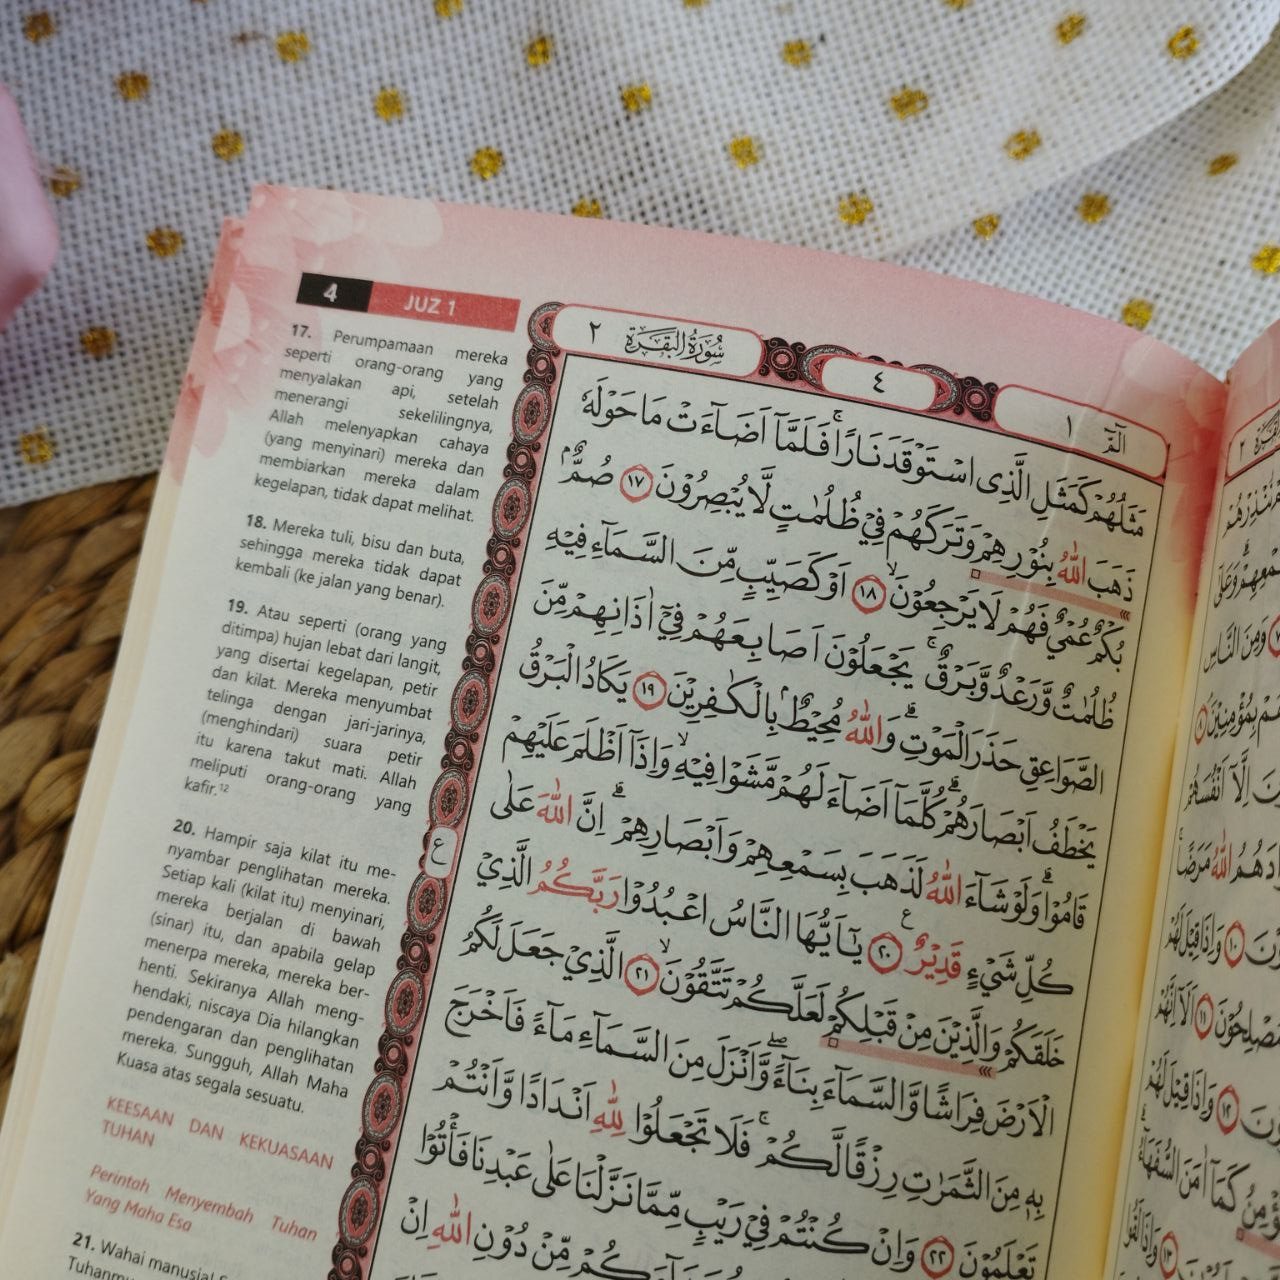 4 JUZ 1
17. Perumpamaan mereka
seperti orang-orang yang
menyalakan api, setelah
menerangi sekelilingnya,
Allah melenyapkan cahaya
(yang menyinari) mereka dan
membiarkan mereka dalam
kegelapan, tidak dapat melihat.
18. Mereka tuli, bisu dan buta,
sehingga mereka tidak dapat
kembali (ke jalan yang benar).
19. Atau seperti (orang yang
ditimpa) hujan lebat dari langit,
yang disertai kegelapan, petir
dan kilat. Mereka menyumbat
telinga dengan jari-jarinya,
(menghindari) suara petir
itu karena takut mati. Allah
meliputi orang-orang yang
kafir.¹²
20. Hampir saja kilat itu me-
nyambar penglihatan mereka.
Setiap kali (kilat itu) menyinari,
mereka berjalan di bawah
(sinar) itu, dan apabila gelap
menerpa mereka, mereka ber-
henti. Sekiranya Allah meng-
hendaki, niscaya Dia hilangkan
pendengaran dan penglihatan
mereka. Sungguh, Allah Maha
Kuasa atas segala sesuatu.
KEESAAN DAN KEKUASAAN
TUHAN
Perintah Menyembah Tuhan
Yang Maha Esa
21. Wahai manusia!
الۤمّۤ ١ ٤ سُوْرَةُ الْبَقَرَةِ ٢
مَثَلُهُمْ كَمَثَلِ الَّذِى اسْتَوْقَدَ نَارًا ۚ فَلَمَّآ اَضَاۤءَتْ مَا حَوْلَهٗ
ذَهَبَ اللّٰهُ بِنُوْرِهِمْ وَتَرَكَهُمْ فِيْ ظُلُمٰتٍ لَّا يُبْصِرُوْنَ ١٧ صُمٌّ ۢ
بُكْمٌ عُمْيٌ فَهُمْ لَا يَرْجِعُوْنَ ۙ ١٨ اَوْ كَصَيِّبٍ مِّنَ السَّمَاۤءِ فِيْهِ
ظُلُمٰتٌ وَّرَعْدٌ وَّبَرْقٌ ۚ يَجْعَلُوْنَ اَصَابِعَهُمْ فِيْٓ اٰذَانِهِمْ مِّنَ
الصَّوَاعِقِ حَذَرَ الْمَوْتِ ۗ وَاللّٰهُ مُحِيْطٌ ۢ بِالْكٰفِرِيْنَ ١٩ يَكَادُ الْبَرْقُ
يَخْطَفُ اَبْصَارَهُمْ ۗ كُلَّمَآ اَضَاۤءَ لَهُمْ مَّشَوْا فِيْهِ ۙ وَاِذَآ اَظْلَمَ عَلَيْهِمْ
قَامُوْا ۗ وَلَوْ شَاۤءَ اللّٰهُ لَذَهَبَ بِسَمْعِهِمْ وَاَبْصَارِهِمْ ۗ اِنَّ اللّٰهَ عَلٰى
كُلِّ شَيْءٍ قَدِيْرٌ ࣖ ٢٠ يٰٓاَيُّهَا النَّاسُ اعْبُدُوْا رَبَّكُمُ الَّذِيْ
خَلَقَكُمْ وَالَّذِيْنَ مِنْ قَبْلِكُمْ لَعَلَّكُمْ تَتَّقُوْنَ ۙ ٢١ الَّذِيْ جَعَلَ لَكُمُ
الْاَرْضَ فِرَاشًا وَّالسَّمَاۤءَ بِنَاۤءً ۖ وَّاَنْزَلَ مِنَ السَّمَاۤءِ مَاۤءً فَاَخْرَجَ
بِهٖ مِنَ الثَّمَرٰتِ رِزْقًا لَّكُمْ ۚ فَلَا تَجْعَلُوْا لِلّٰهِ اَنْدَادًا وَّاَنْتُمْ
تَعْلَمُوْنَ ٢٢ وَاِنْ كُنْتُمْ فِيْ رَيْبٍ مِّمَّا نَزَّلْنَا عَلٰى عَبْدِنَا فَأْتُوْا
مِّنْ دُوْنِ اللّٰهِ اِنْ
ع